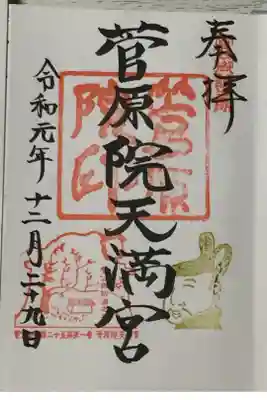 奉拝
菅原院天満宮
令和元年十二月二十九日